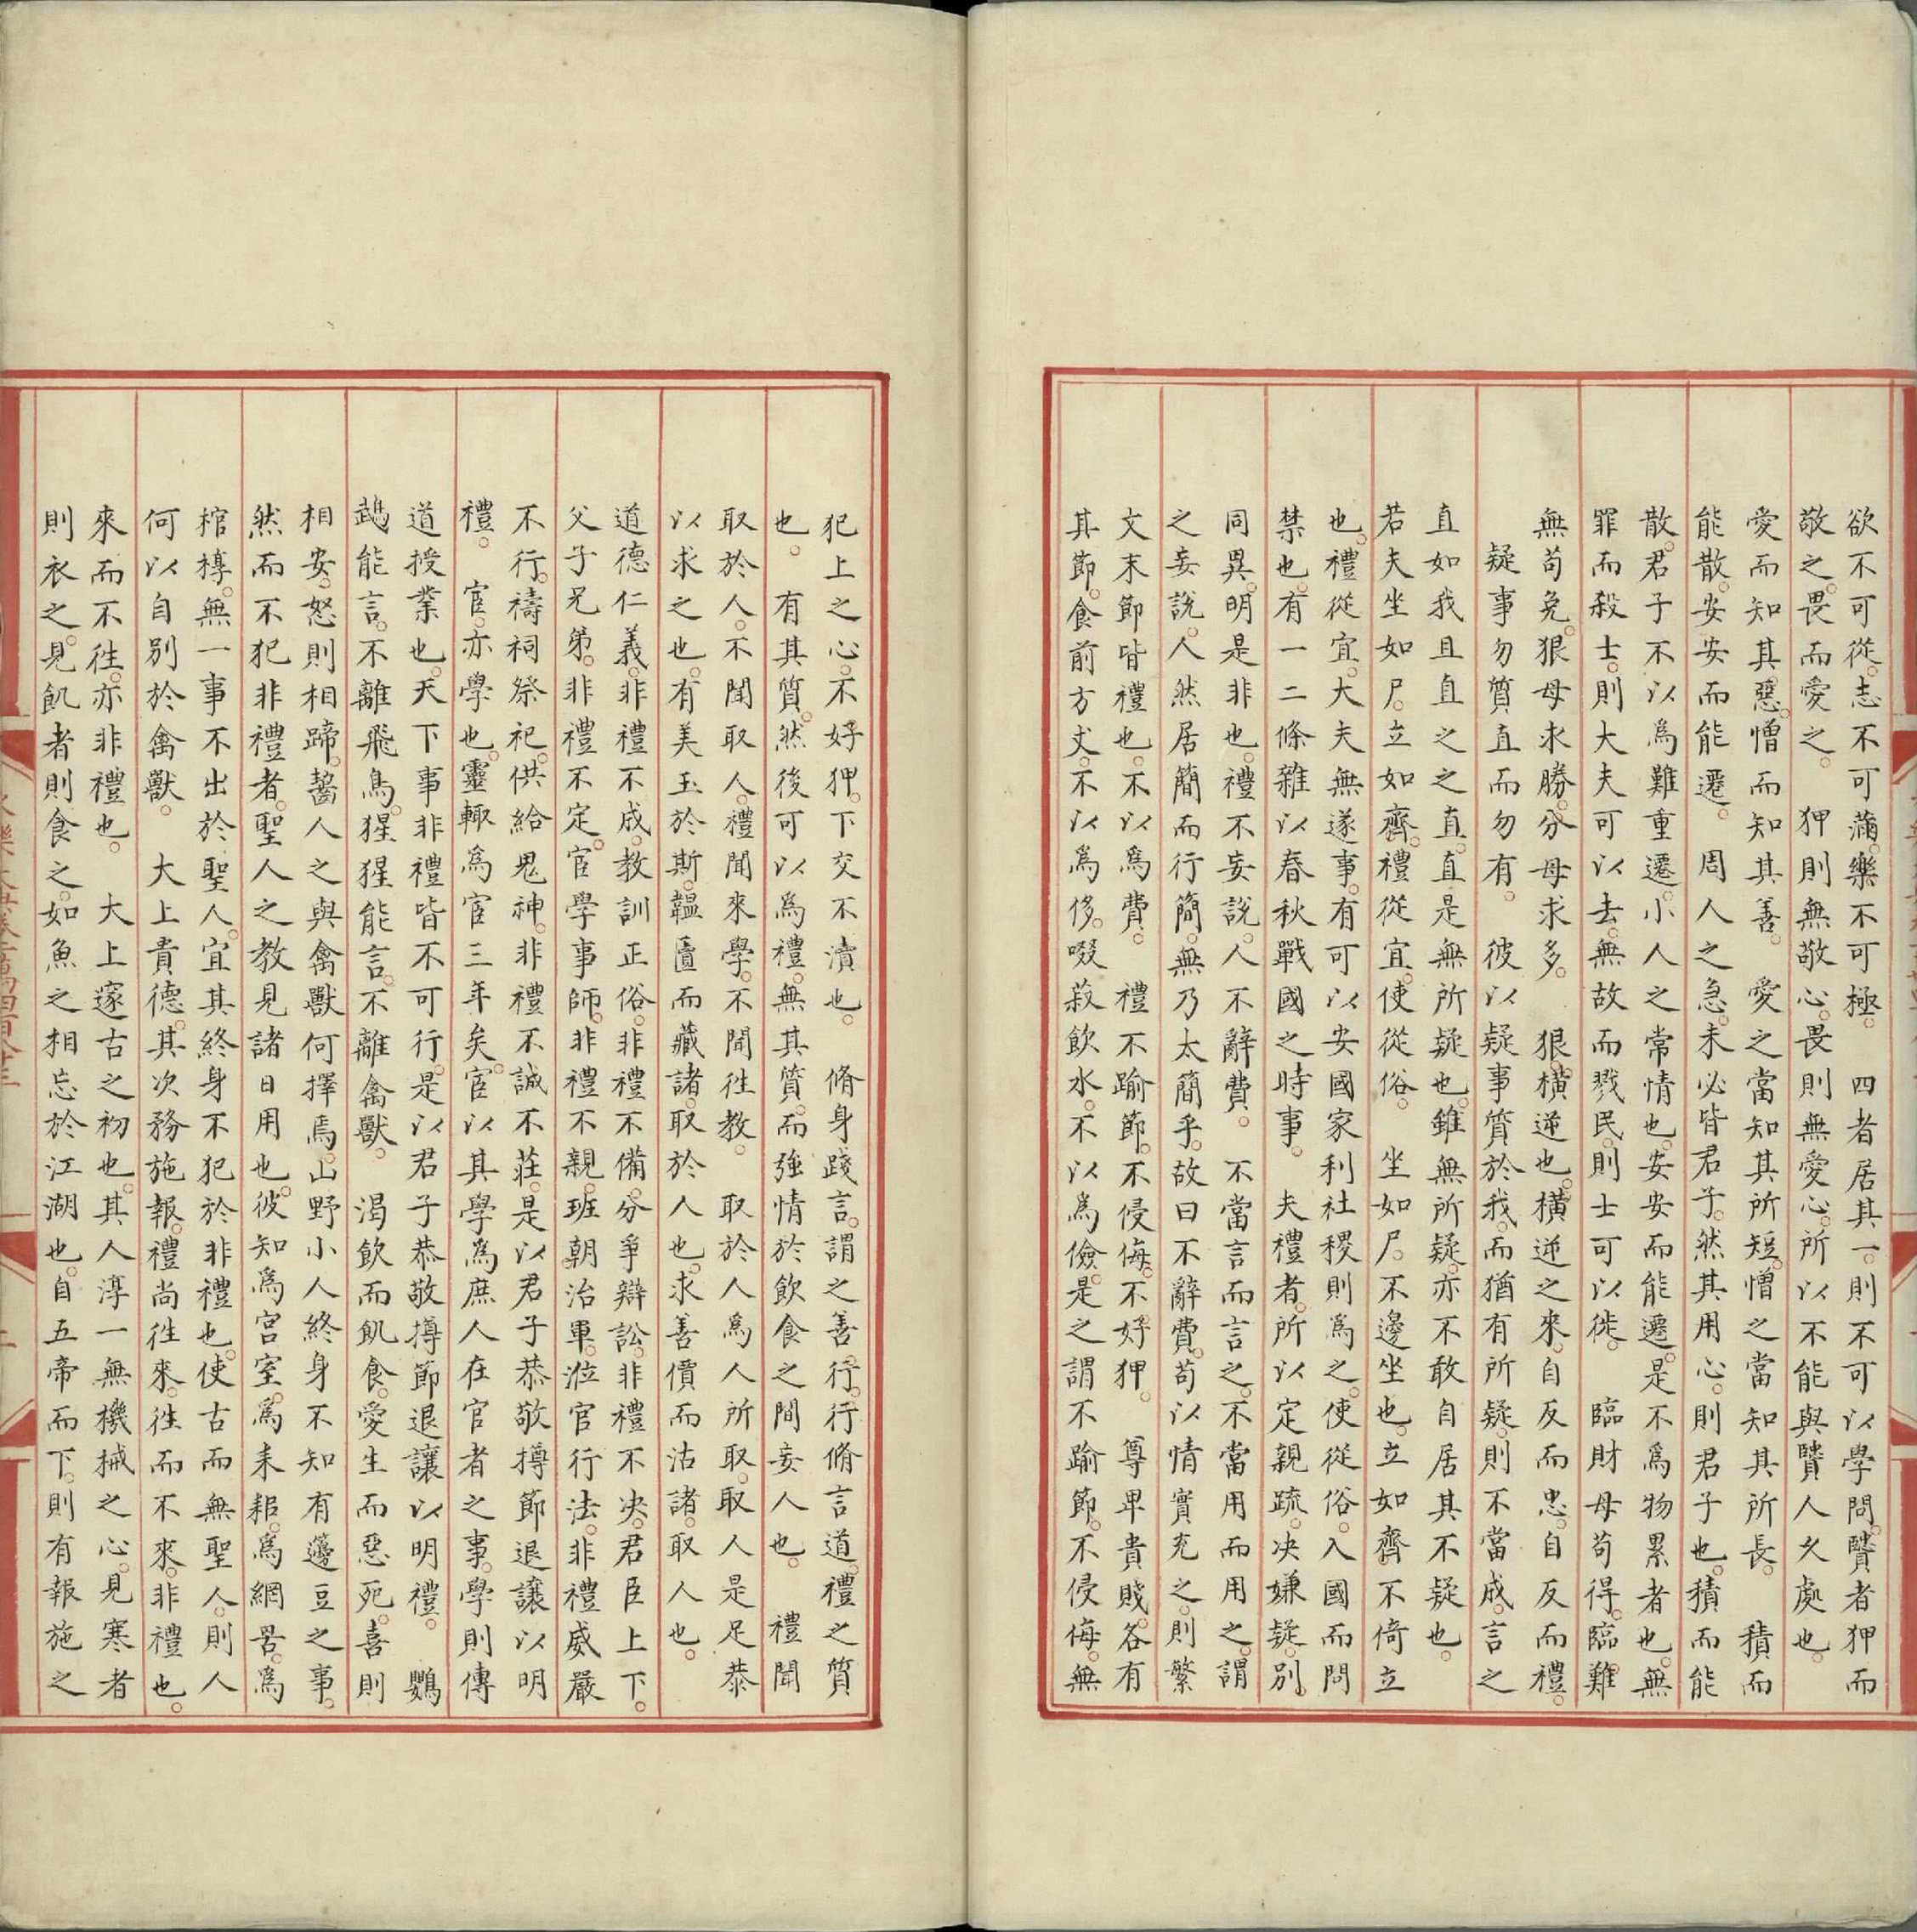 欲不可從。志不可滿。樂不可極。　四者居其一。則不可以學問。賢者狎而
敬之。畏而愛之。　狎則無敬心。畏則無愛心。所以不能與賢人久處也。
愛而知其惡。憎而知其善。　愛之當知其所短。憎之當知其所長。　積而
能散。安安而能遷。　周人之急。未必皆君子。然其用心。則君子也。積而能
散。君子不以為難。重遷。小人之常情也。安安而能遷。是不為物累者也。無
罪而殺士。則大夫可以去。無故而戮民。則士可以徙。　臨財毋苟得。臨難
無苟免。狠毋求勝。分毋求多。　狠。橫逆也。橫逆之來。自反而忠。自反而禮。
疑事勿質。直而勿有。　彼以疑事質於我。而猶有所疑。則不當成言之
直如我且直之之直。直是無所疑也。雖無所疑。亦不敢自居其不疑也。
若夫坐如尸。立如齊。禮從宜。使從俗。　坐如尸。不邊坐也。立如齊。不倚立
也。禮從宜。大夫無遂事。有可以安國家利社稷則為之。使從俗。入國而問
禁也。有一二條雜以春秋戰國之時事。　夫禮者。所以定親疏。決嫌疑。別
同異。明是非也。禮不妄說。人不辭費。　不當言而言之。不當用而用之。謂
之妄說。人然居簡而行簡。無乃太簡乎。故曰不辭費。苟以情實充之。則繁
文末節皆禮也。不以為費。　禮不踰節。不侵侮。不好狎。　尊卑貴賤。各有
其節。食前方丈。不以為侈。啜菽飲水。不以為儉。是之謂不踰節。不侵侮。無
犯上之心。不好狎。下交不瀆也。　脩身踐言。謂之善行。行脩言道。禮之質
也。　有其質。然後可以為禮。無其質。而強情於飲食之間妄人也。　禮聞
取於人。不聞取人。禮聞來學。不聞往教。　取於人為人所取。取人是足恭
以求之也。有美玉於斯。韞匵而藏諸。取於人也。求善價而沽諸。取人也。
道德仁義。非禮不成。教訓正俗。非禮不備。分爭辯訟。非禮不決。君臣上下。
父子兄弟。非禮不定。宦學事師。非禮不親。班朝治軍。涖官行法。非禮威嚴
不行。禱祠祭祀。供給鬼神。非禮不誠不莊。是以君子恭敬撙節退讓以明
禮。　宦。亦學也。靈輙為宦三年矣。宦以其學為庶人在官者之事。學則傳
道授業也。天下事非禮皆不可行。是以君子恭敬撙節退讓以明禮。　鸚
䳇能言。不離飛鳥。猩猩能言。不離禽獸。　渴飲而飢食。愛生而惡死。喜則
相安。怒則相蹄齧。人之與禽獸何擇焉。山野小人終身不知有籩豆之事。
然而不犯非禮者。聖人之教見諸日用也。彼知為宮室。為耒耜。為網罟。為
棺槨。無一事不出於聖人。宜其終身不犯於非禮也。使古而無聖人。則人
何以自別於禽獸。　大上貴德。其次務施報。禮尚往來。往而不來。非禮也。
來而不往。亦非禮也。　大上。邃古之初也。其人淳一無機械之心。見寒者
則衣之。見飢者則食之。如魚之相忘於江湖也。自五帝而下。則有報施之